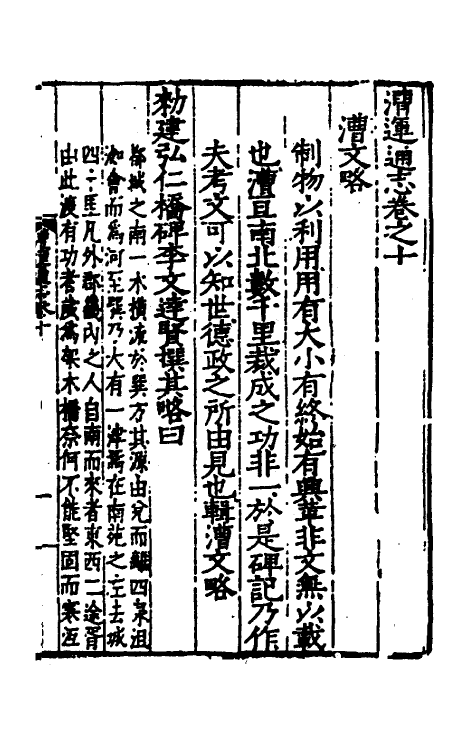 漕運通志卷之十
漕文略
制物以利用用有大小有終始有興革非文無以載
也漕亘南北數千里裁成之功非一於是碑記乃作
夫考文可以知世德政之所由見也輯漕文略
勑建弘仁橋碑李文達賢撰其略曰
都城之南一水橫流於巽方其源由兌而
四來沮
洳會而爲河至巽乃大有一津焉在南苑之左去城
四十里凡外郡畿內之人自南而來者東西二途胥
由此渡有功者歲爲架木橋奈何不能堅固而寒沍
一